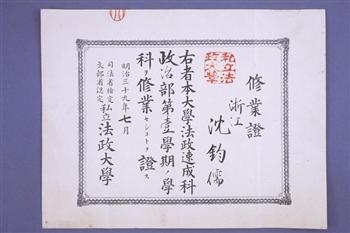 修業證
浙江
沈鈞儒
右者本大學法政速成科
政治部第壹學期ノ學
科ヲ修業セシコトヲ證ス
明治三十九年七月
司法省指定
文部省認定
私立法政大學
私立法政大學